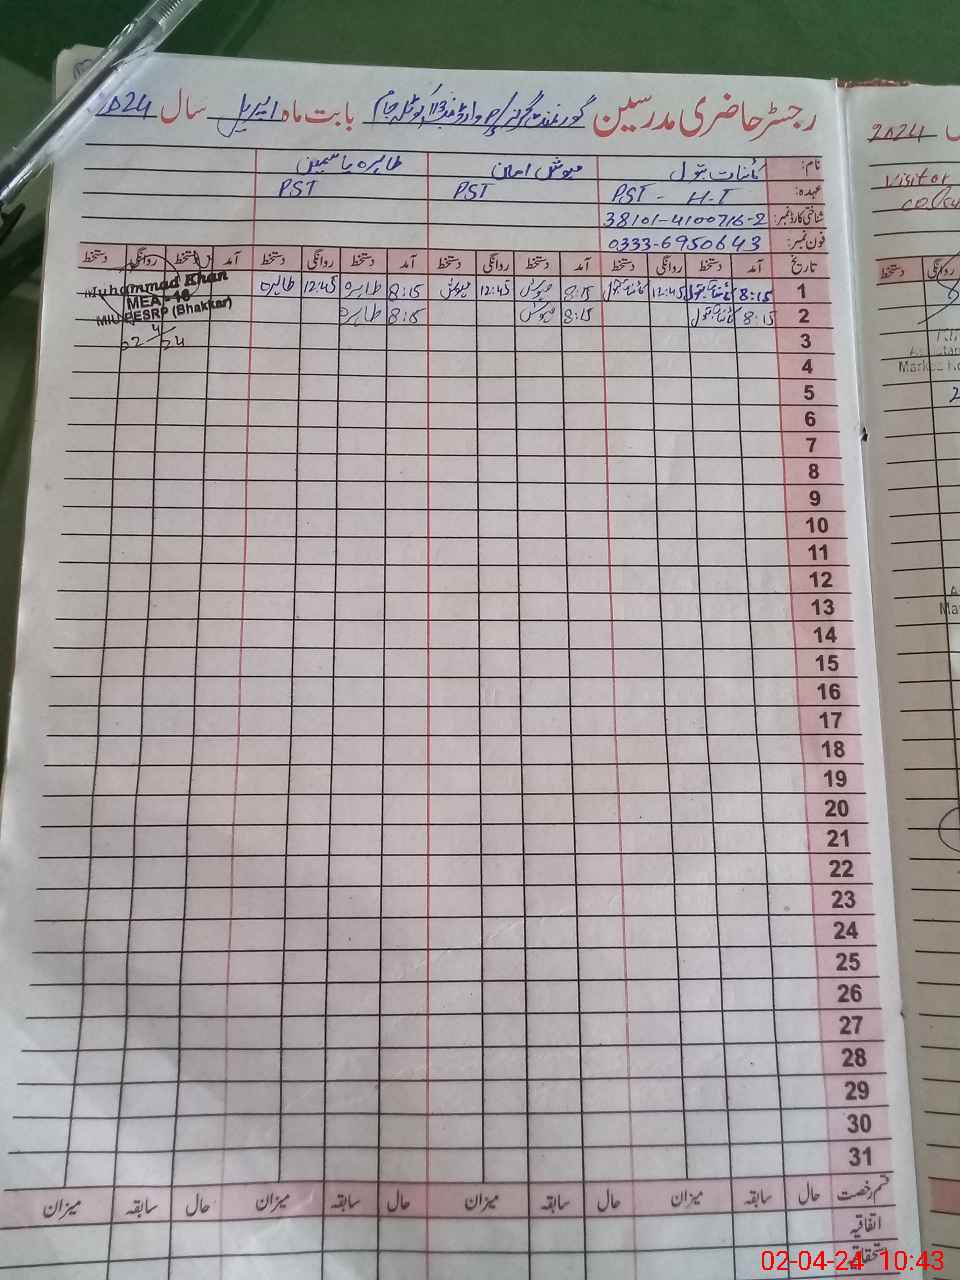 رجسٹر حاضری مدرسین گورنمنٹ گرلز وارڈ نمبر 13 کوٹلہ جام بابت ماہ اپریل سال 2024
نام: کائنات بتول مہوش اعوان طاہرہ یاسمین
عہدہ: PST - H-T PST PST
شناختی کارڈ نمبر: 38101-4100716-2
فون نمبر: 0333-6950643
تاریخ آمد دستخط روانگی دستخط آمد دستخط روانگی دستخط آمد دستخط روانگی دستخط آمد دستخط روانگی دستخط
1 8:15 کائنات بتول 12:45 کائنات بتول 8:15 مہوش 12:45 مہوش 8:15 طاہرہ 12:45 طاہرہ
2 8:15 کائنات بتول 8:15 مہوش 8:15 طاہرہ
Muhammad Khan
MEA - 16
MIU PESRP (Bhakkar)
02/4/24
3
4
5
6
7
8
9
10
11
12
13
14
15
16
17
18
19
20
21
22
23
24
25
26
27
28
29
30
31
قسم رخصت حال سابقہ میزان حال سابقہ میزان حال سابقہ میزان حال سابقہ میزان
اتفاقیہ
استحقاقیہ
2024
Visitor
روانگی دستخط
02-04-24 10:43